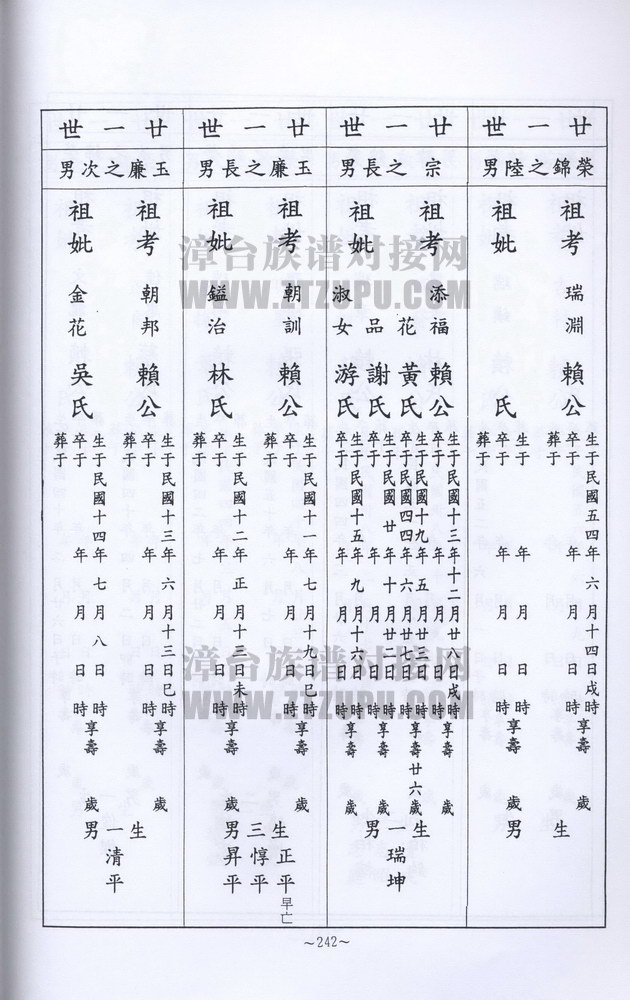 廿一世
榮錦之陸男
祖考瑞淵賴公
生于民國五四年六月十四日戌時享壽歲
卒于年月日時
葬于
祖妣氏
生于年月日時享壽歲
卒于年月日時
葬于
生男
廿一世
宗之長男
祖考添福賴公
生于民國十三年十二月廿八日戌時享壽歲
卒于年月日時
祖妣花黃氏
生于民國十九年五月廿三日時享壽廿六歲
卒于民國四四年六月廿日時
品謝氏
生于民國廿年十月廿二日時享壽歲
卒于年月日時
淑女游氏
生于民國十五年九月十六日時享壽歲
卒于年月日時
生一男
瑞坤
廿一世
玉廉之長男
祖考朝訓賴公
生于民國十一年七月十九日巳時享壽歲
卒于年月日時
葬于
祖妣鎰治林氏
生于民國十二年正月十三日未時享壽歲
卒于年月日時
葬于
生三男
正平早亡
惇平
昇平
廿一世
玉廉之次男
祖考朝邦賴公
生于民國十三年六月十三日巳時享壽歲
卒于年月日時
葬于
祖妣金花吳氏
生于民國十四年七月八日時享壽歲
卒于年月日時
葬于
生一男
清平
～242～
漳台族谱对接网
WWW.ZTZUPU.COM
漳台族谱对接网
WWW.ZTZUPU.COM